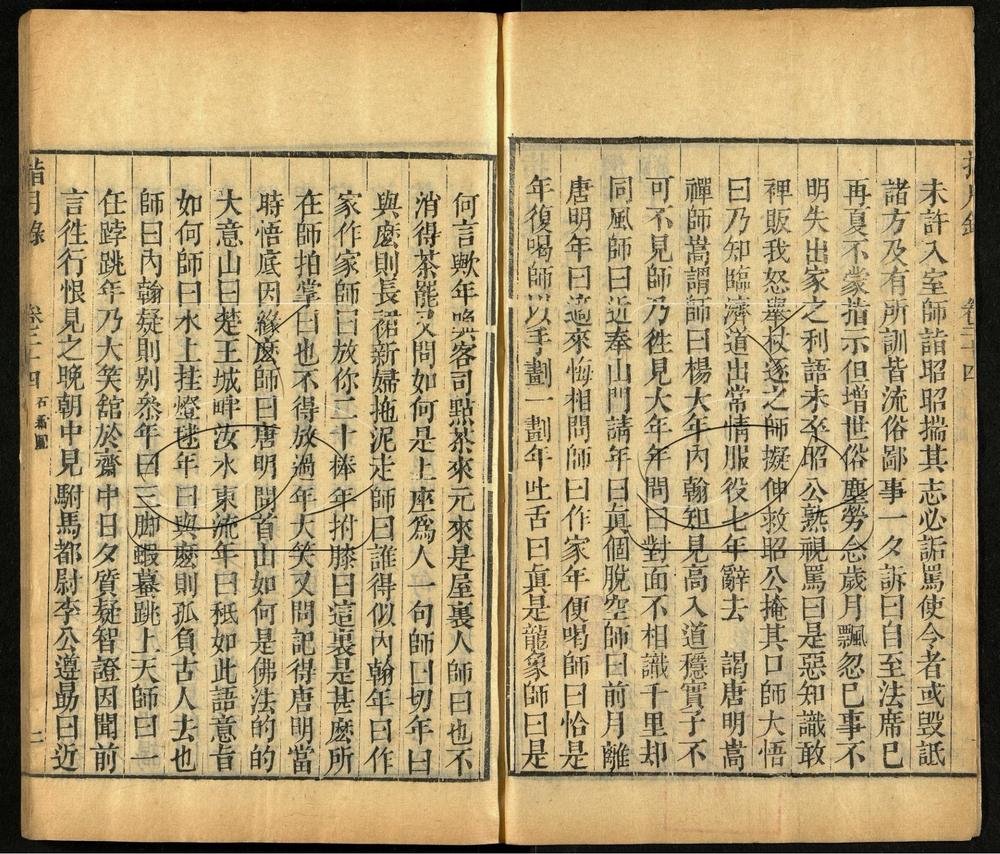 指月錄 卷二十四
未許入室師詣昭昭揣其志必詬罵使令者或毀詆
諸方及有所訓皆流俗鄙事一夕訴曰自至法席已
再夏不蒙指示但增世俗塵勞念歲月飄忽已事不
明失出家之利語未卒昭公熟視罵曰是惡知識敢
裨販我怒舉杖逐之師擬伸救昭公掩其口師大悟
曰乃知臨濟道出常情服役七年辭去 謁唐明嵩
禪師嵩謂師曰楊大年內翰知見高入道穩實子不
可不見師乃徃見大年年問曰對面不相識千里却
同風師曰近奉山門請年曰眞個脫空師曰前月離
唐明年曰適來悔相問師曰作家年便喝師曰恰是
年復喝師以手劃一劃年吐舌曰眞是龍象師曰是
何言歟年喚客司點茶來元來是屋裏人師曰也不
消得茶罷又問如何是上座爲人一句師曰切年曰
與麽則長裙新婦拖泥走師曰誰得似內翰年曰作
家作家師曰放你二十棒年拊膝曰這裏是甚麽所
在師拍掌曰也不得放過年大笑又問記得唐明當
時悟底因緣麽師曰唐明問首山如何是佛法的的
大意山曰楚王城畔汝水東流年曰秖如此語意旨
如何師曰水上挂燈毬年曰與麽則孤負古人去也
師曰內翰疑則別叅年曰三脚蝦蟇跳上天師曰一
任𨁝跳年乃大笑舘於齋中日夕質疑智證因聞前
言徃行恨見之晚朝中見駙馬都尉李公遵勗曰近
指月錄 卷二十四 二